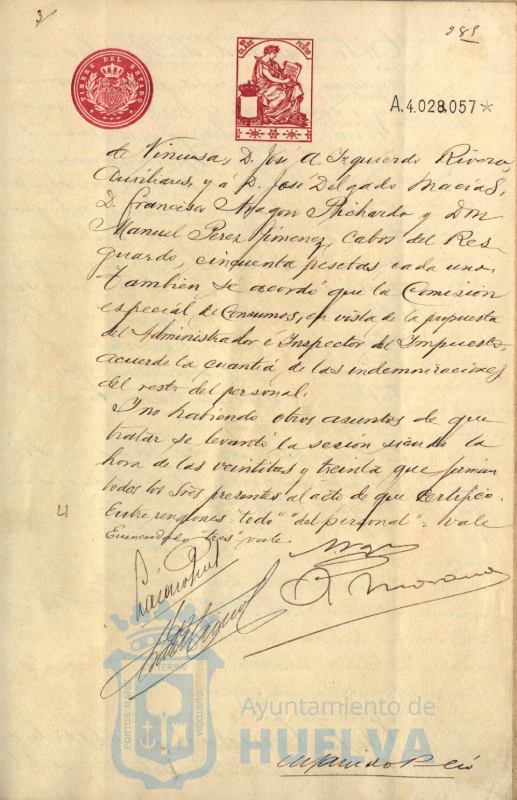 3/
285
TIMBRE DEL ESTADO
A.4.028.057*
de Vinuesa, D. José A. Izquierdo Rivera,
Auxiliares, y á D. José Delgado Macías,
D. Francisco Aragon Pichardo y Don
Manuel Perez Jimenez, Cabos del Res-
guardo, cincuenta pesetas cada uno.
También se acordó que la Comisión
especial de Consumos, en vista de la propuesta
del Administrador é Inspector del Impuesto,
acuerde la cuantía de las indemnizaciones
del resto del personal.
Y no habiendo otros asuntos de que
tratar se levantó la sesión siendo la
hora de las veintitres y treinta que firman
todos los Sres presentes al acto de que certifico.
Entre renglones "todo" "del personal" = vale
Enmendado "tres" vale.
Morano
FORTUS MARIS
TERRÆ
CUSTODIA
Ayuntamiento de
HUELVA